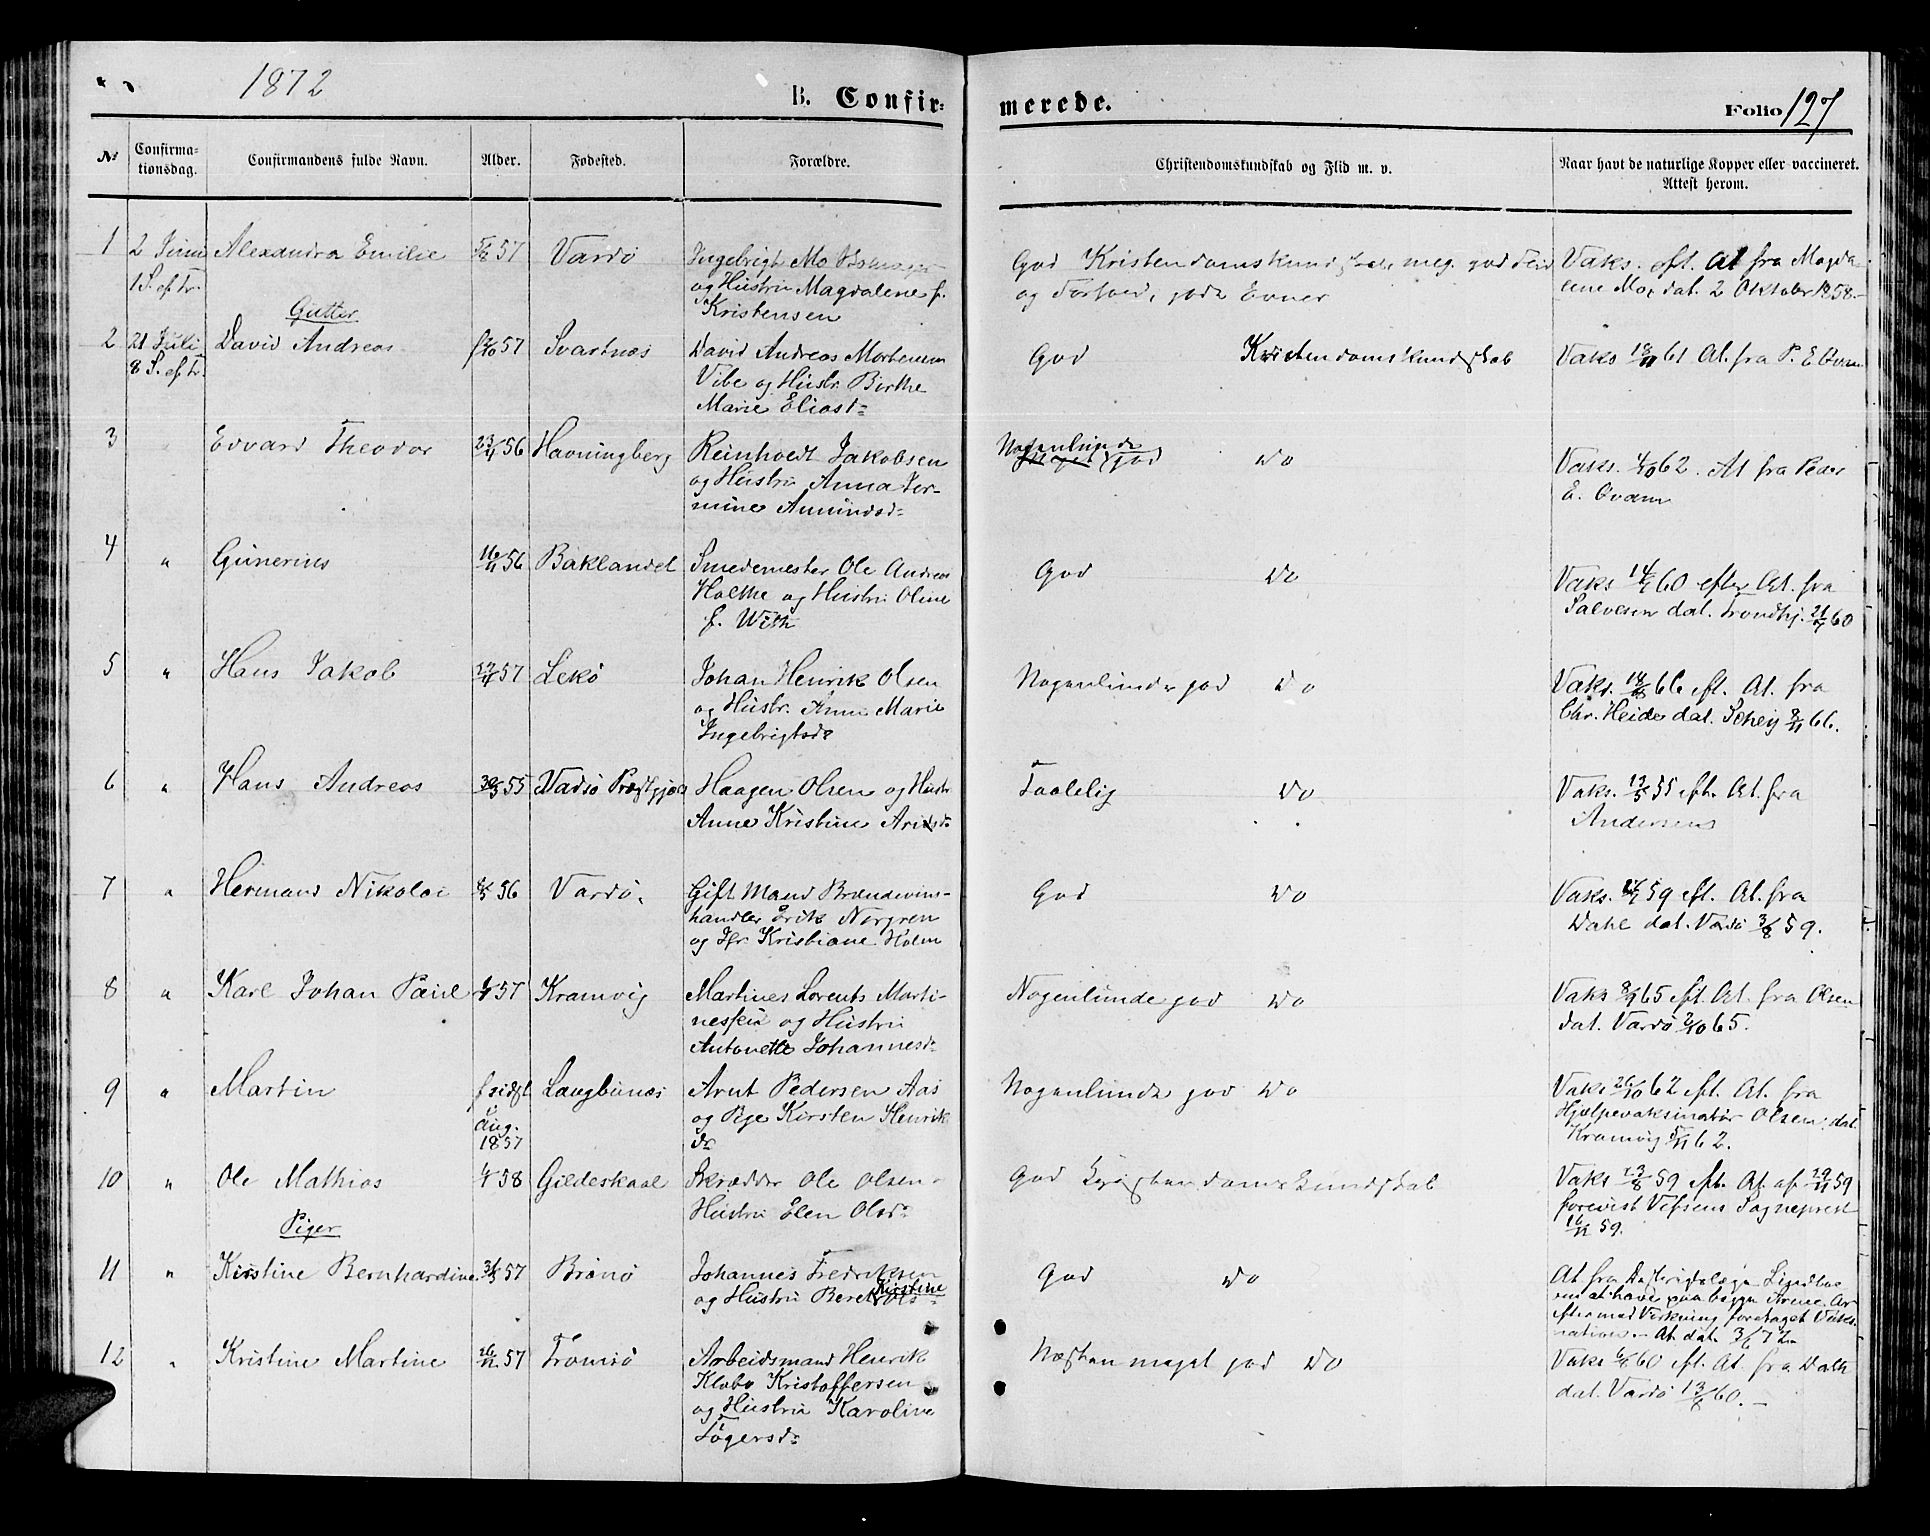 1872
B. Confir-
merede.
Folio 127
№
Confirma-
tionsdag.
Confirmandens fulde Navn.
Alder.
Fødested.
Forældre.
Christendomskundskab og Flid m. v.
Naar havt de naturlige Kopper eller vaccineret.
Attest herom.
1 2 Juni Alexandra Emilie 57 Vardø Ingebrigt Mo
1 S. ef Tr. og Hustru Magdalene f.
Kristensen
God Kristendomskundskab meg. god Flid
og Forhold, gode Evner
Vaks. eft. At fra Magda-
lene Mo, dat. 2 Oktober 1858.
Gutter
2 21 Juli David Andreas 57 Svartnæs David Andreas Mortensen
8 S. ef Tr. Vibe og Hustr. Birthe
Marie Eliasd=
God Kristendomskundskab
Vaks 18/11 61 At. fra P. E Qvam
3 Edvard Theodor 23/11 56 Havningberg Reinholdt Jakobsen
og Hustru Anna Jer-
mine Amundsd=
Nogenlunde
Meget god Do
Vaks. 4/10 62. At fra Peder
E. Qvam
4 " Gunerius 16/11 56 Baklandet Smedemester Ole Andreas
Holthe og Hustru Oline
f. With
God Do
Vaks 14/7 60 efter At. fra
Salvesen dat. Trondhj. 21/7 60
5 " Hans Jakob 57 Lekø Johan Henrik Olsen
og Hustr. Anne Marie
Ingebrigtsd=
Nogenlunde god Do
Vaks. 66 eft. At. fra
Chr. Heide dat. 66.
6 " Hans Andreas 55 Vadsø Præstgjæld Haagen Olsen og Hustr
Anne Kristine
Taalelig Do
Vaks. 55 eft. At. fra
Andersen
7 " Hermand Nikolai 56 Vardø. Gift Mand Brændevins-
handler Erik Norgren
og Kristiane Holm
God Do
Vaks. 59 eft. At. fra
Dahl dat. Vardø 3/8 59.
8 " Karl Johan Paul 57 Kramvig Martines Lorents Marti-
nessen og Hustru
Antonette Johannesd=
Nogenlunde god Do
Vaks 8/9 65 eft. At. fra Olsen
dat. Vardø 2/10 65.
9 " Martin født
i
Aug.
1857
Langbunæs Arnt Pedersen Aas
og Pige Kirsten Henrik
dr
Nogenlunde god Do
Vaks 26/10 62 eft. At. fra
Hjælpevaksinatør Olsen, dat
Kramvig 5/11 62.
10 " Ole Mathias 58 Gildeskaal Skrædder Ole Olsen
Hustru Elen Olsd=
God Kristendomskundskab
Vaks 59 eft. At. af 59
forevist Vefsens Sogneprest
59.
Piger
11 " Kirstine Bernhardine 31/3 57 Brønø Johannes Fredriksen
Kirstine
og Hustru Beret Ols=
God Do
At fra Distriktslæge Lindboe
om at have paa begge Arme, Ar
efter med Virkning foretaget Vaksi-
nation. At. dat. 3/6 72
12 " Kristine Martine 26/12 57 Tromsø Arbeidsmand Henrik
Klobo Kristoffersen
og Hustru Karoline
Tøgersd=
Næsten meget god Do
Vaks 60 eft. At. fra Dahl
dat. Vardø 13/8 60.